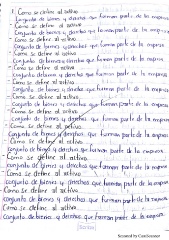 1. Como se define al activo
Conjunto de bienes y derechos que forman parte de la empresa.
Como se define al activo.
Conjunto de bienes y derechos que forman parte de la empresa.
Como se define al activo.
Conjunto de bienes y derechos que forman parte de la empresa.
Como se define al activo.
Conjunto de bienes y derechos que forman parte de la empresa.
Como se define al activo.
Conjunto de bienes y derechos que forman parte de la empresa.
Como se define al activo.
Conjunto de bienes y derechos que forman parte de la empresa.
Como se define al activo.
Conjunto de bienes y derechos que forman parte de la empresa.
Como se define al activo.
Conjunto de bienes y derechos que forman parte de la empresa.
Como se define al activo.
Conjunto de bienes y derechos que forman parte de la empresa.
Como se define al activo.
Conjunto de bienes y derechos que forman parte de la empresa.
Como se define al activo.
Conjunto de bienes y derechos que forman parte de la empresa.
Como se define al activo.
Conjunto de bienes y derechos que forman parte de la empresa.
Scanned by CamScanner